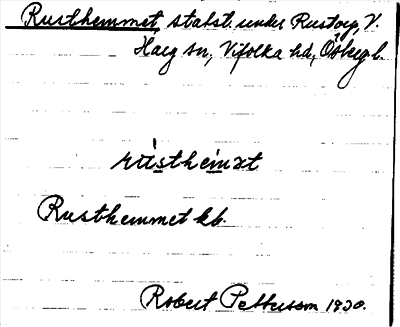 Rusthemmet, stabst. under Rustorp, V.
Harg sn, Vifolka hd, Östergl.
Rusthemmet kb.
Robert Pettersson 1930.